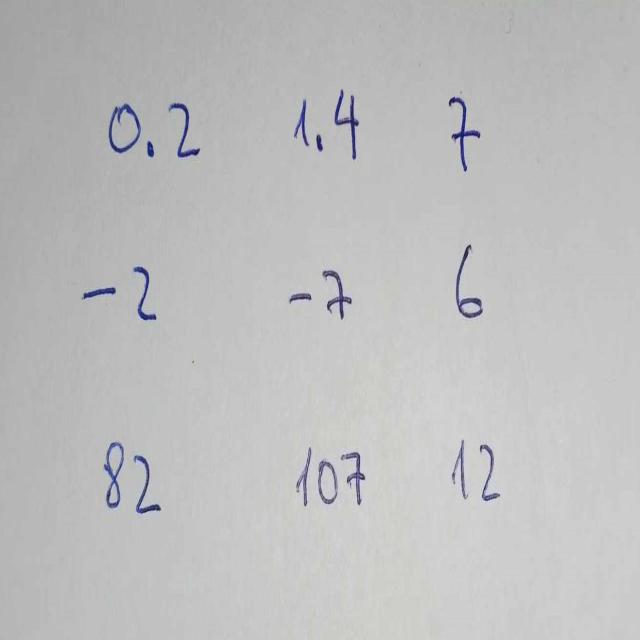 0.2 1.4 7
-2 -7 6
82 107 12